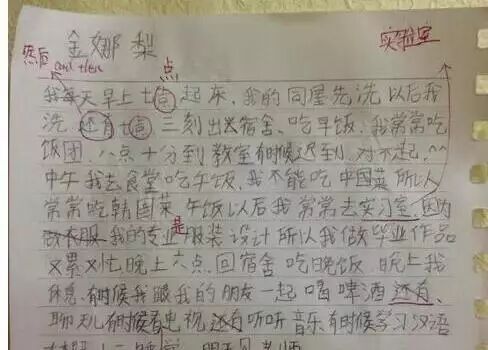 金娜梨
实验室
然后 and then
点
我每天早上七向起床，我的同屋先洗以后我
洗 还有七向三刻出去宿舍、吃早饭，我常常吃
饭团，八点十分到教室有时候迟到，对不起，^^
中午我去食堂吃午饭，我不能吃中国菜所以
常常吃韩国菜 午饭以后我常常去实习室 因为
做衣服 我的专业是服装设计所以我做毕业作品
又累又忙，晚上六点，回宿舍吃晚饭，晚上我
休息，有时候我跟我的朋友一起喝啤酒还有，
聊天儿有时候看电视，还有听听音乐有时候学习汉语